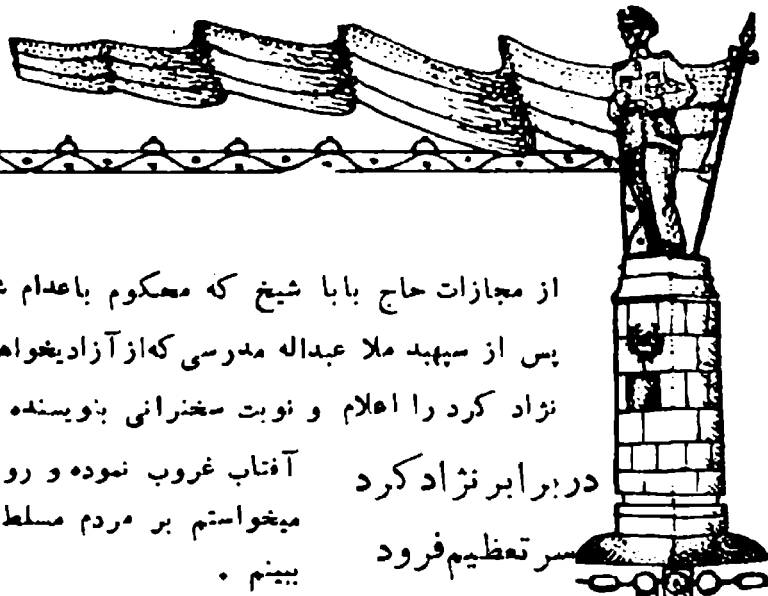 از مجازات حاج بابا شیخ که محکوم باعدام
پس از سپهبد ملا عبداله مدرسی که از آزادیخواه
نژاد کرد را اعلام و نوبت سخنرانی بنویسنده
در برابر نژاد کرد
سر تعظیم فرود
آفتاب غروب نموده و رو
میخواستم بر مردم مسلط
ببینم .